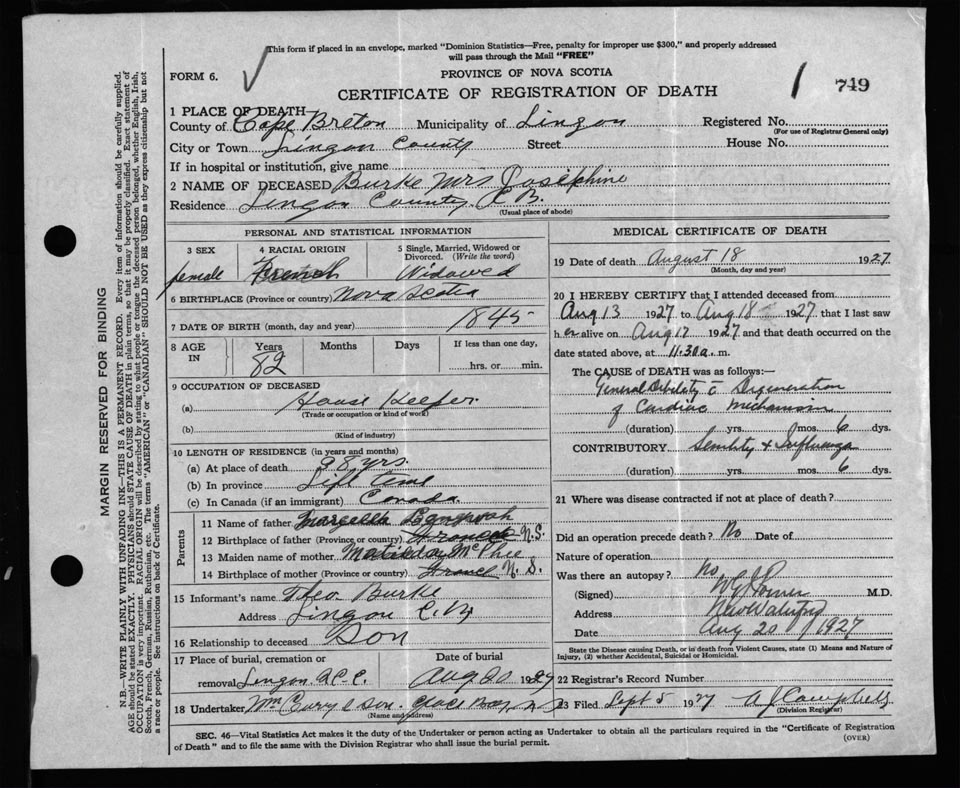 This form if placed in an envelope, marked "Dominion Statistics—Free, penalty for improper use $300," and properly addressed
will pass through the Mail "FREE"
FORM 6.
PROVINCE OF NOVA SCOTIA
CERTIFICATE OF REGISTRATION OF DEATH
749
1 PLACE OF DEATH
County of Cape Breton Municipality of Lingan Registered No.
(For use of Registrar General only)
City or Town Lingan County Street House No.
If in hospital or institution, give name
2 NAME OF DECEASED Burke Mrs Josephine
Residence Lingan County C.B.
(Usual place of abode)
PERSONAL AND STATISTICAL INFORMATION
3 SEX 4 RACIAL ORIGIN 5 Single, Married, Widowed or Divorced. (Write the word)
female French Widowed
6 BIRTHPLACE (Province or country) Nova Scotia
7 DATE OF BIRTH (month, day and year) 1845
8 AGE IN Years Months Days If less than one day,
82 hrs. or min.
9 OCCUPATION OF DECEASED
(a) House Keeper
(Trade or occupation or kind of work)
(b)
(Kind of industry)
10 LENGTH OF RESIDENCE (in years and months)
(a) At place of death yrs.
(b) In province Life time
(c) In Canada (if an immigrant) Canada
Parents
11 Name of father
12 Birthplace of father (Province or country) France N.S.
13 Maiden name of mother Matilda McPhee
14 Birthplace of mother (Province or country) France N. S.
15 Informant's name Theo. Burke
Address Lingan C.B.
16 Relationship to deceased Son
17 Place of burial, cremation or removal Lingan. R.C.C. Date of burial Aug 20 1927
18 Undertaker Wm Curry & Son. Glace Bay, N.S.
(Name and address)
MEDICAL CERTIFICATE OF DEATH
19 Date of death August 18 1927
(Month, day and year)
20 I HEREBY CERTIFY that I attended deceased from
Aug 13 1927 to Aug 18 1927 that I last saw
her alive on Aug 17 1927 and that death occurred on the
date stated above, at 11.30 a. m.
The CAUSE of DEATH was as follows:—
General Debility c̄ Degeneration
of Cardiac Mechanism
(duration) yrs. mos. 6 dys.
CONTRIBUTORY Senility & Influenza
(duration) yrs. mos. 6 dys.
21 Where was disease contracted if not at place of death?
Did an operation precede death? No Date of
Nature of operation
Was there an autopsy? No
(Signed) M.D.
Address New Waterford
Date Aug 20 / 1927
State the Disease causing Death, or in death from Violent Causes, state (1) Means and Nature of
Injury, (2) whether Accidental, Suicidal or Homicidal.
22 Registrar's Record Number
23 Filed Sept 5 1927 A J Campbell
(Division Registrar)
SEC. 46—Vital Statistics Act makes it the duty of the Undertaker or person acting as Undertaker to obtain all the particulars required in the "Certificate of Registration
of Death" and to file the same with the Division Registrar who shall issue the burial permit.
(OVER)
MARGIN RESERVED FOR BINDING
N.B.—WRITE PLAINLY WITH UNFADING INK—THIS IS A PERMANENT RECORD. Every item of information should be carefully supplied.
AGE should be stated EXACTLY. PHYSICIANS should STATE CAUSE OF DEATH in plain terms, so that it may be properly classified. Exact statement of
OCCUPATION is very important. RACIAL ORIGIN will be described by stating to what people or tongue the deceased person belonged, whether English, Irish,
Scotch, French, German, Russian, Ruthenian, etc. The terms "AMERICAN" or "CANADIAN" SHOULD NOT BE USED as they express citizenship but not
a race or people. See instructions on back of Certificate.